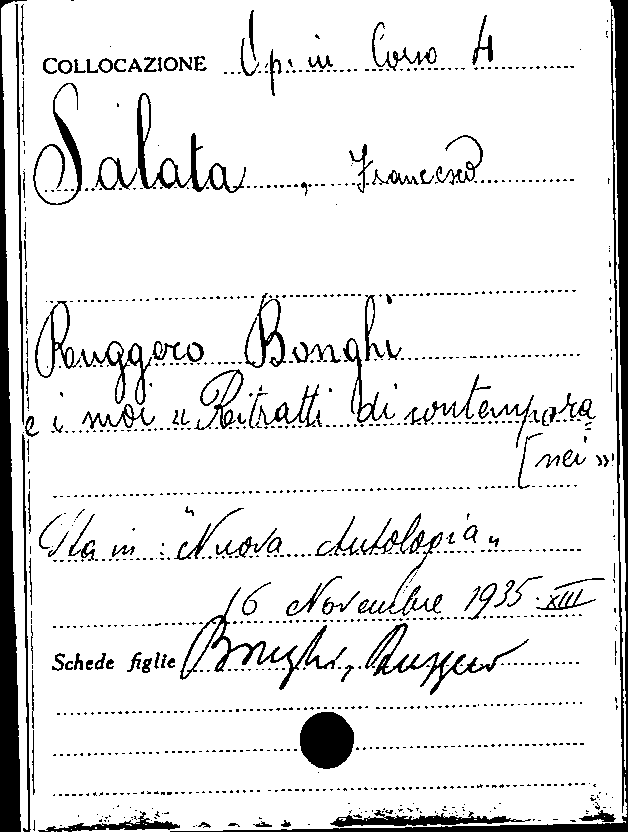 COLLOCAZIONE Op. in Corso 4
Salata, Francesco
Ruggero Bonghi
e i suoi « Ritratti di contempora=
[nei »
Sta in: "Nuova Antologia"
16 Novembre 1935. XIII
Schede figlie Bonghi, Ruggero